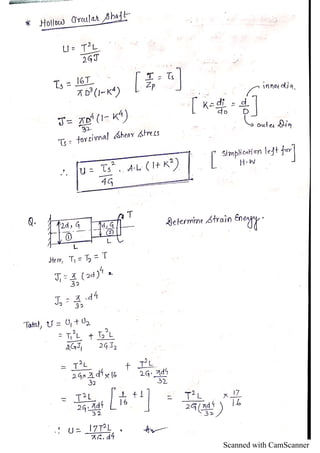 * Hollow Circular Shaft
U = T²L / 2GJ
τs = 16T / πD³(1-K⁴) [ T/Zp = τs ]
inner dia.
J = πD⁴/32 (1-K⁴) [ K = di/do = d/D ]
outer Dia
τs = torsional shear stress
∴ U = τs²/4G . A.L (1+K²) [ Simplification left for H.W ]
Q. 2d, G ① d, G ② T Determine Strain Energy.
L L
Here, T₁ = T₂ = T
J₁ = π/32 (2d)⁴
J₂ = π/32 . d⁴
Total, U = U₁ + U₂
= T₁²L/2GJ₁ + T₂²L/2GJ₂
= T²L / 2G × π/32 d⁴ × 16 + T²L / 2G . πd⁴/32
= T²L / 2G . πd⁴/32 [ 1/16 + 1 ] = T²L / 2G(πd⁴/32) × 17/16
∴ U = 17T²L / πG.d⁴
Scanned with CamScanner